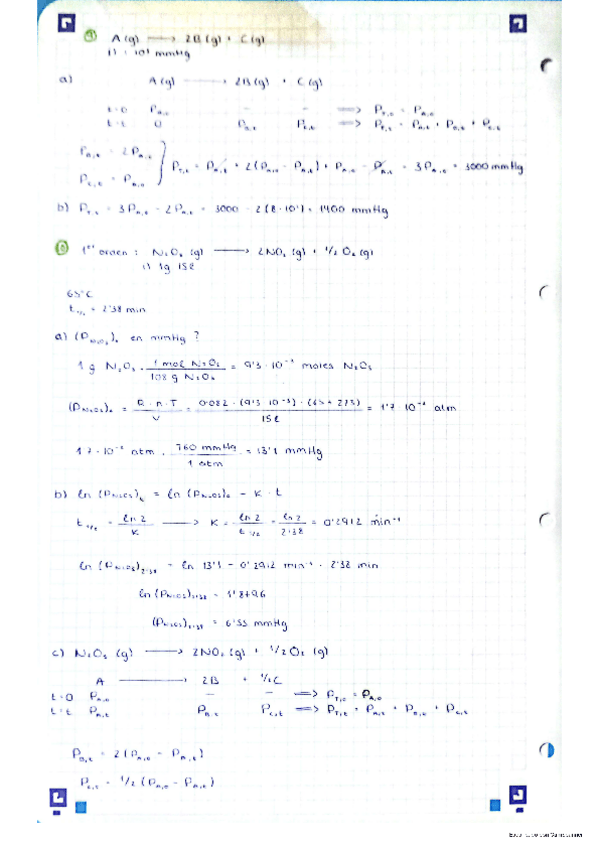 9 A (g) ⟶ 2B (g) + C (g)
i) = 10³ mmHg
a) A (g) ⟶ 2B (g) + C (g)
t=0 P_A,0 – – ⟹ P_T,0 = P_A,0
t=t 0 P_B,t P_C,t ⟹ P_T,t = P_A,t + P_B,t + P_C,t
P_B,t = 2 P_A,t
P_C,t = P_A,0
P_T,t = P_A,t + 2 (P_A,0 - P_A,t) + P_A,0 - P_A,t = 3 P_A,0 = 3000 mmHg
b) P_T,t = 3 P_A,t - 2 P_A,t = 3000 - 2 (8·10²) = 1400 mmHg
10 1er orden : N₂O₅ (g) ⟶ 2NO₂ (g) + 1/2 O₂ (g)
i) 1g 15l
65ºC
t 1/2 = 2'38 min
a) (P N₂O₅)₀ en mmHg ?
1 g N₂O₅ · 1 mol N₂O₅ / 108 g N₂O₅ = 9'3 · 10⁻³ moles N₂O₅
(P N₂O₅)₀ = R · n · T / V = 0'082 · (9'3 · 10⁻³) · (65 + 273) / 15l = 1'7 · 10⁻² atm
1'7 · 10⁻² atm · 760 mmHg / 1 atm = 13'1 mmHg
b) ln (P N₂O₅)t = ln (P N₂O₅)₀ - K · t
t 1/2 = ln 2 / K ⟶ K = ln 2 / t 1/2 = ln 2 / 2'38 = 0'2912 min⁻¹
ln (P N₂O₅)2'38 = ln 13'1 - 0'2912 min⁻¹ · 2'38 min
ln (P N₂O₅)2'38 = 1'8796
(P N₂O₅)2'38 = 6'55 mmHg
c) N₂O₅ (g) ⟶ 2NO₂ (g) + 1/2 O₂ (g)
A ⟶ 2B + 1/2 C
t=0 P_A,0 – – ⟹ P_T,0 = P_A,0
t=t P_A,t P_B,t P_C,t ⟹ P_T,t = P_A,t + P_B,t + P_C,t
P_B,t = 2 (P_A,0 - P_A,t)
P_C,t = 1/2 (P_A,0 - P_A,t)